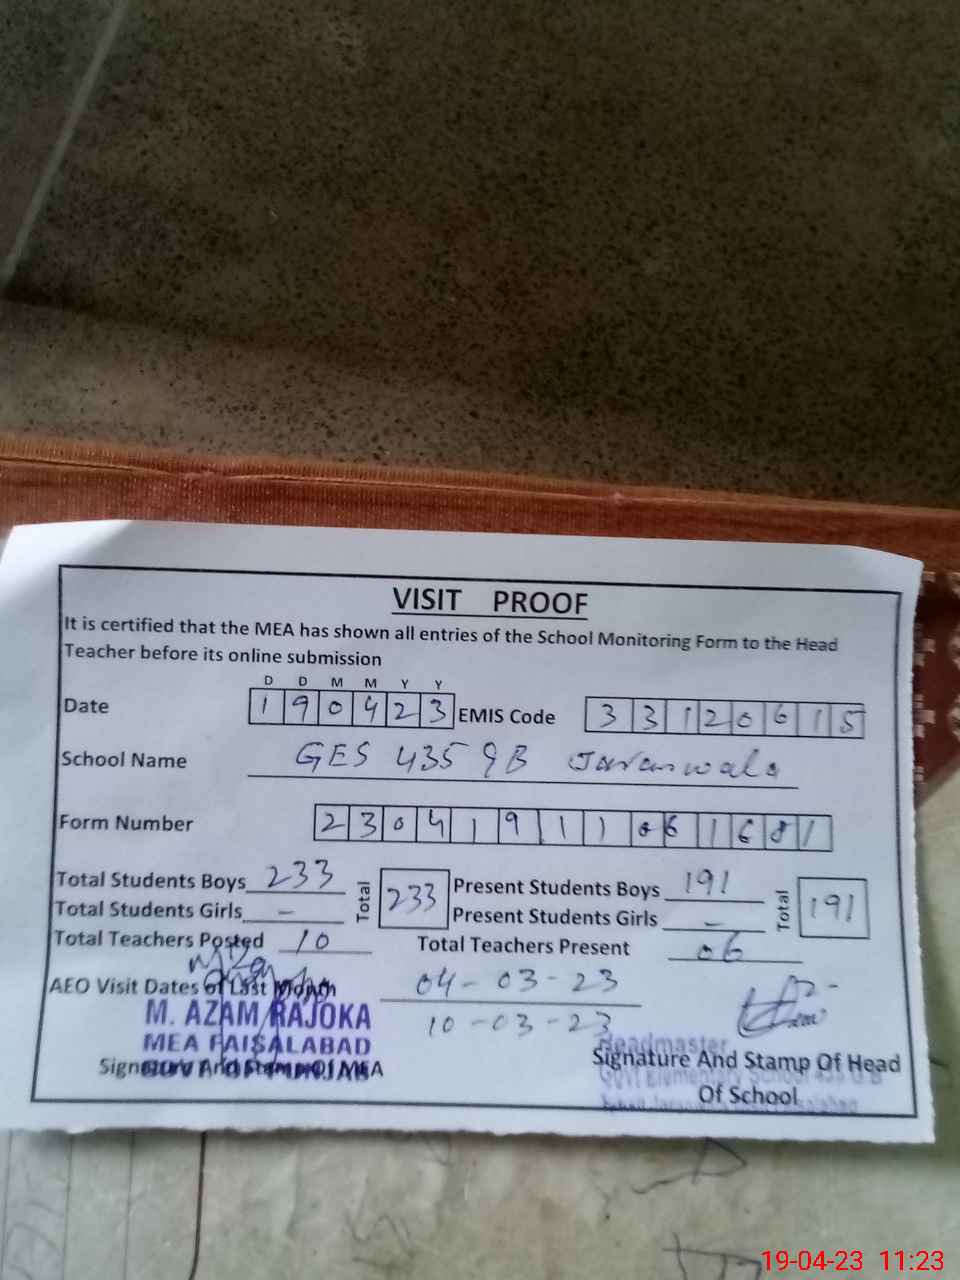 VISIT PROOF
It is certified that the MEA has shown all entries of the School Monitoring Form to the Head
Teacher before its online submission
D D M M Y Y
Date 1 9 0 4 2 3 EMIS Code 3 3 1 2 0 6 1 5
School Name GES 435 GB Jaranwala
Form Number 2 3 0 4 1 9 1 1 0 6 1 6 8 1
Total Students Boys 233 Total 233 Present Students Boys 191 Total 191
Total Students Girls - Present Students Girls -
Total Teachers Posted 10 Total Teachers Present 06
AEO Visit Dates of Last Month 04-03-23
10-03-23
M. AZAM RAJOKA
MEA FAISALABAD
GOVT OF PUNJAB
Signature And Stamp Of MEA
Headmaster
Signature And Stamp Of Head
Govt Elementary School 435 G B
Of School
19-04-23 11:23